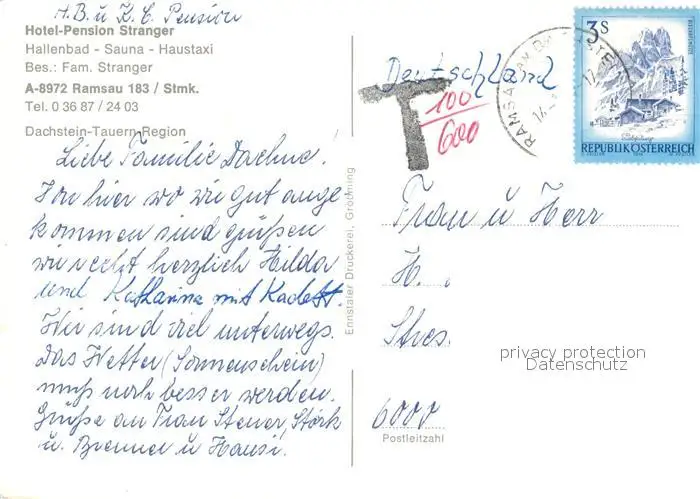 H.B. u. Z. C. Pension
Hotel-Pension Stranger
Hallenbad - Sauna - Haustaxi
Bes.: Fam. Stranger
A-8972 Ramsau 183 / Stmk.
Tel. 0 36 87 / 24 03
Dachstein-Tauern-Region
Liebe Familie
Von hier wo wir gut ange-
kommen sind grüßen
wir recht herzlich Hilda
und Katharina mit Kadett.
Wir sind viel unterwegs.
Das Wetter (Sonnenschein)
muß noch besser werden.
Grüße an Frau Stener, Störk
u. Brenner u Hansi.
Ennstaler Druckerei, Gröbming
Deutschland
T 100
600
RAMSAU AM DACHSTEIN
3S
REPUBLIK ÖSTERREICH
Frau u Herr
H.
Stres.
privacy protection
Datenschutz
6000
Postleitzahl